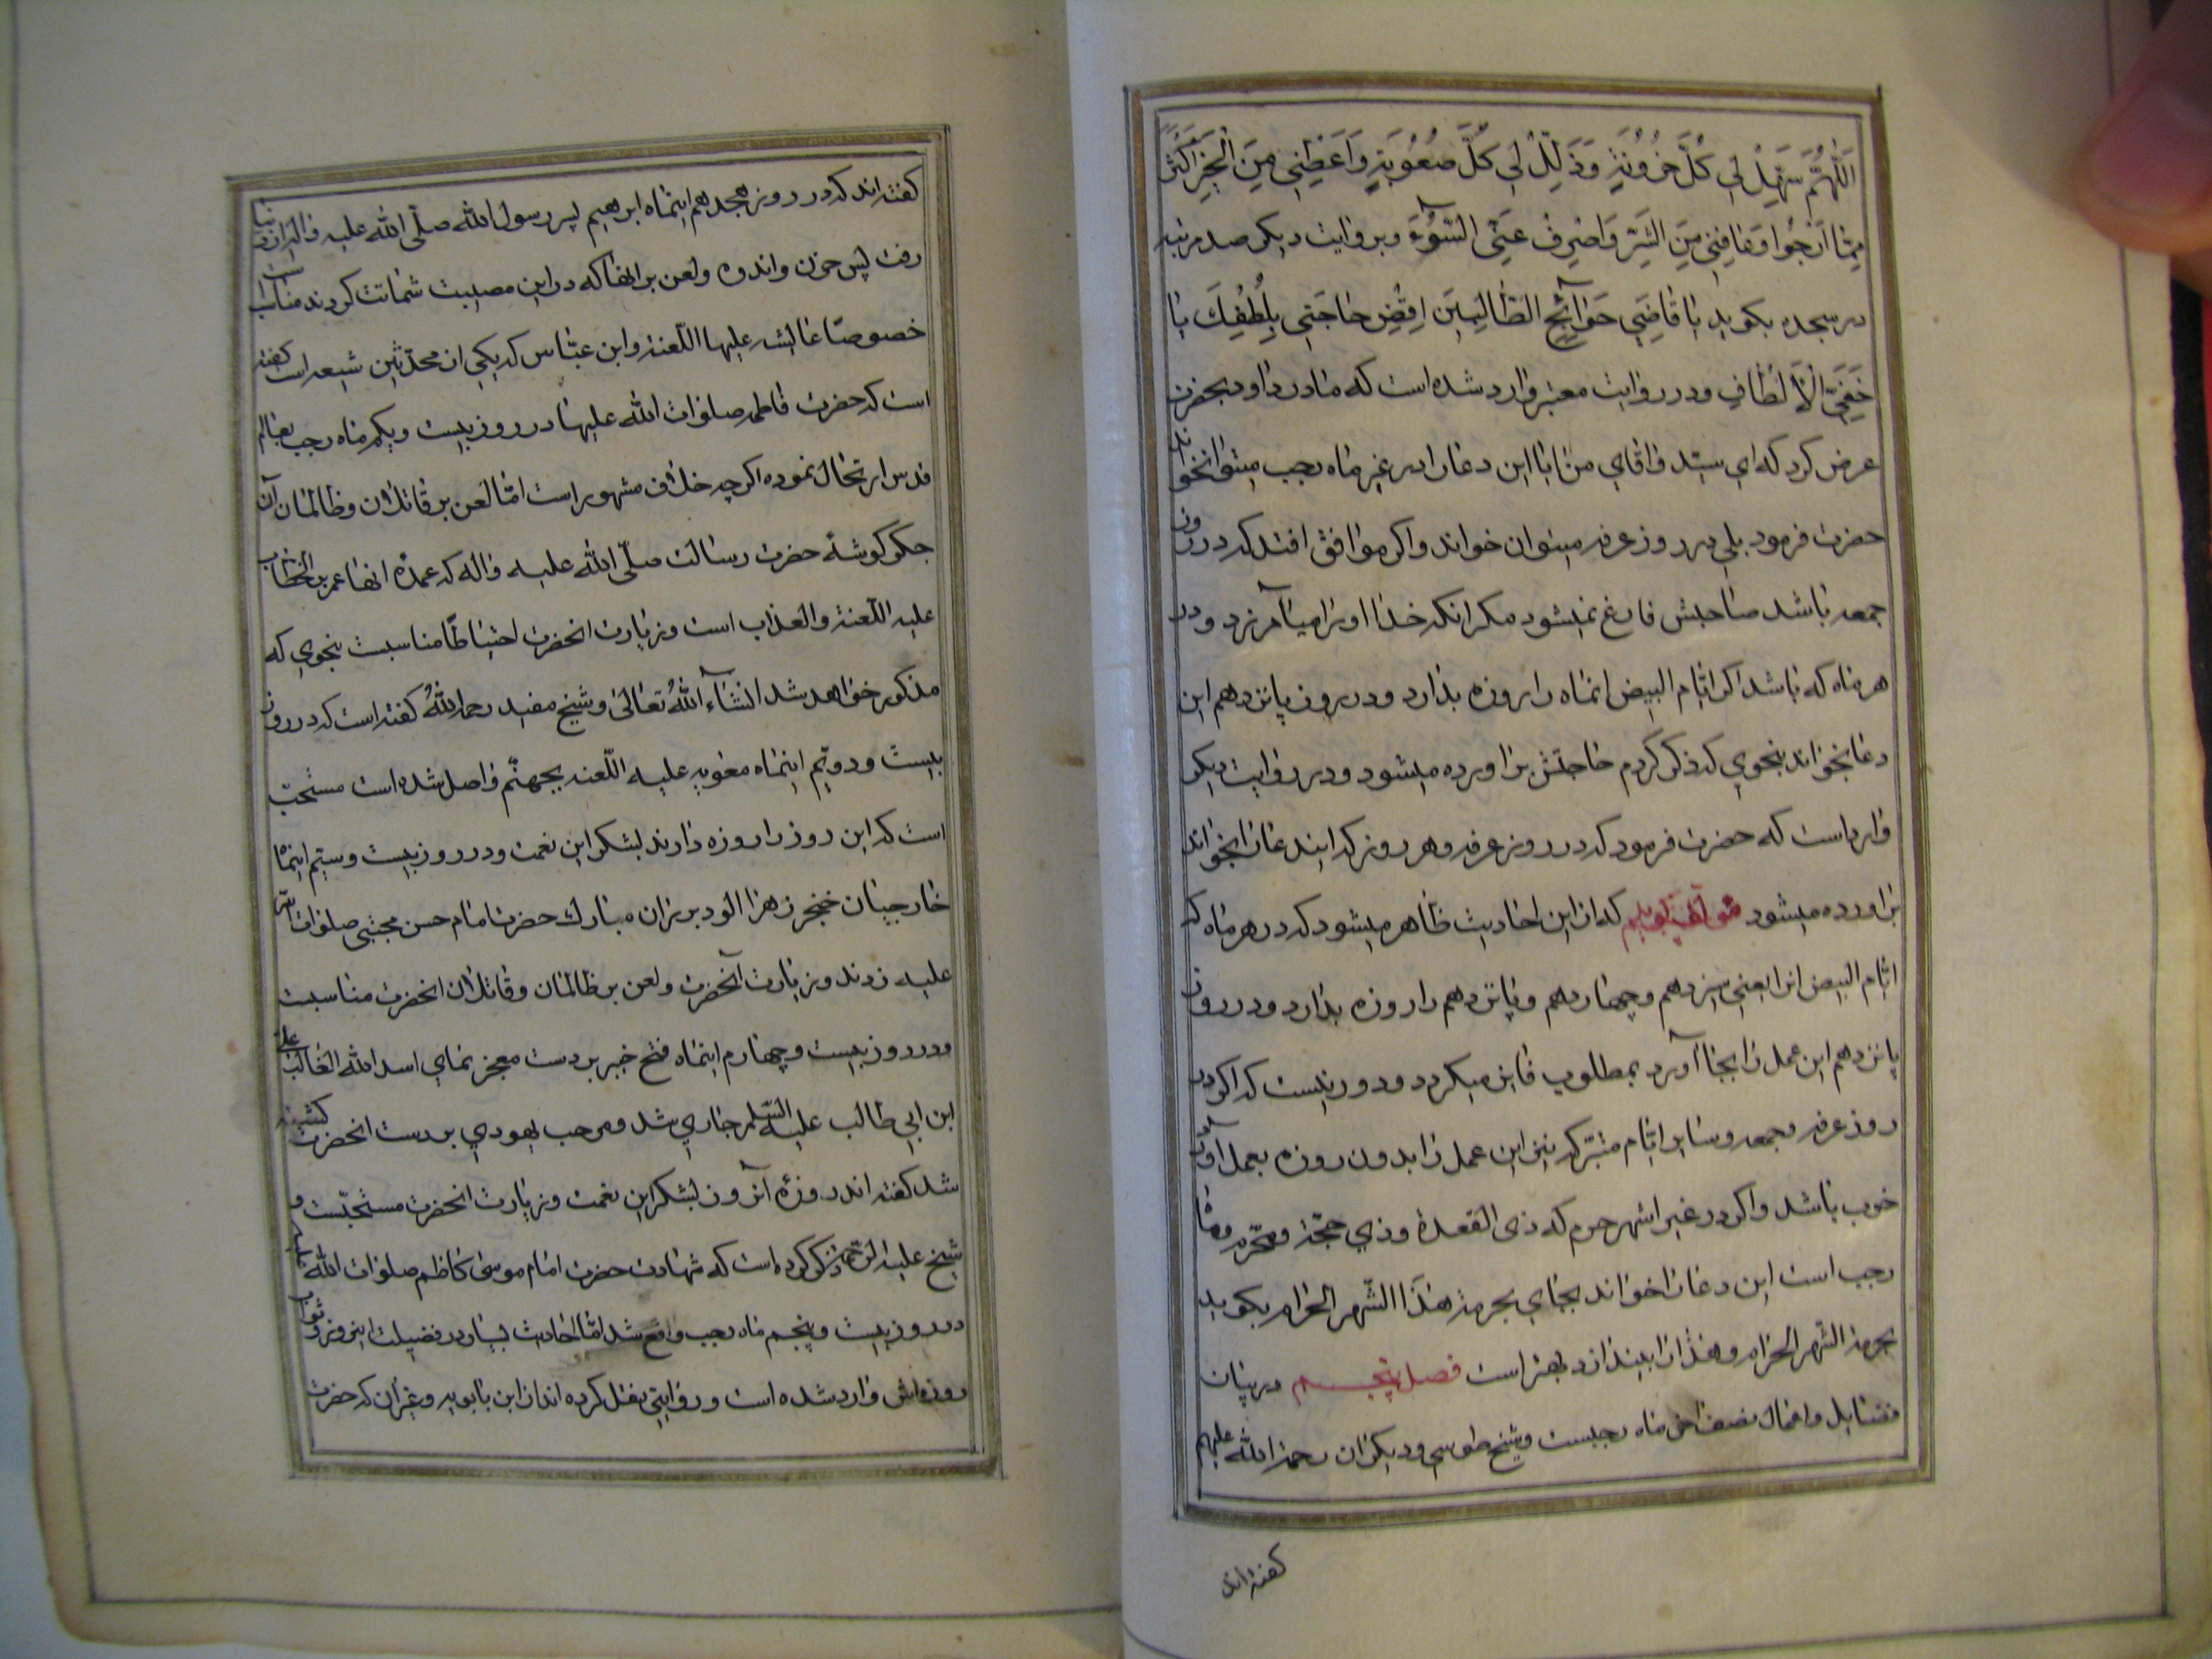 اَللّٰهُمَّ سَهِّلْ لِي كُلَّ حُزُونَةٍ وَذَلِّلْ لِي كُلَّ صُعُوبَةٍ وَاَعْطِنِي مِنَ الْخَيْرِ اَكْثَرَ
مِمَّا اَرْجُوا وَعَافِنِي مِنَ الشَّرِّ وَاصْرِفْ عَنِّي السُّوٓءَ وبروایت دیکر صد مرتبه
در سجده بکوید یا قَاضِيَ حَوَآئِجِ الطَّالِبِينَ اِقْضِ حَاجَتِي بِلُطْفِكَ یَا
خَفِيَّ الْاَلْطَافِ ودر روایت معتبر وارد شده است که مادر داود بحضرت
عرض کرد که ای سیّد واقای من ایا این دعا را در غیر ماه رجب میتوان خواند
حضرت فرمود بلی در روز عرفه میتوان خواند واکر موافق افتد که در روز
جمعه باشد صاحبش فارغ نمیشود مکر انکه خدا او را میآمرزد ودر
هر ماه که باشد اکر ایّام البیض انماه را روزه بدارد ودر روز پانزدهم این
دعا بخواند بنحوی که ذکر کردم حاجتش براورده میشود ودر روایت دیکر
وارد است که حضرت فرمود که در روز عرفه وهر روز که ایندعا را بخواند
براورده میشود مؤلف کوید که از این احادیث ظاهر میشود که در هر ماه که
ایّام البیض انرا یعنی سیزدهم وچهاردهم وپانزدهم را روزه بدارد ودر روز
پانزدهم این عمل را بجا آورد بمطلوب فایز میکردد ودور نیست که اکر در
روز عرفه وجمعه وسایر ایّام متبرّکه نیز این عمل را بدون روزه بعمل اورد
خوب باشد واکر در غیر اشهر حرم که ذی القعدة وذي حجّة ومحرّم وماه
رجب است این دعا را خواند بجای بحرمة هٰذَا الشّهر الحرام بکوید
بحرمة الشّهر الحرام وهذا را بیندازد بهتر است فصل پنجم در بیان
فضایل واعمال نصف اخر ماه رجبست وشیخ طوسی ودیکران رحمة الله علیهم
کفته اند
کفته اند که در روز هجدهم اینماه ابرهیم پسر رسول الله صلّی الله علیه واله از دنیا
رفت پس حزن واندوه ولعن بر انها که در این مصیبت شماتت کردند مناسب است
خصوصًا عایشه علیها اللّعنة وابن عبّاس که یکی از محدّثین شیعه است کفته
است که حضرت فاطمه صلوات الله علیها در روز بیست ویکم ماه رجب بعالم
قدس ارتحال نموده اکرچه خلاف مشهور است امّا لعن بر قاتلان وظالمان آن
جکر کوشهٔ حضرت رسالت صلّی الله علیه واله که عمدهٔ انها عمر بن الخطّاب
علیه اللّعنة والعذاب است وزیارت انحضرت احتیاطًا مناسبست بنحوی که
مذکور خواهد شد انشآء اللهُ تعالیٰ وشیخ مفید رحمه اللهُ کفته است که در روز
بیست ودویّم اینماه معویه علیه اللّعنه بجهنّم واصل شده است مستحبّ
است که این روز را روزه دارند بشکر این نعمت ودر روز بیست وسیّم اینماه
خارجیان خنجر زهر الود بر ران مبارك حضرت امام حسن مجتبی صلوات الله
علیه زدند وزیارت آنحضرت ولعن بر ظالمان وقاتلان انحضرت مناسبست
ودر روز بیست وچهارم اینماه فتح خیبر بر دست معجز نمای اسد الله الغالب علی
ابن ابی طالب علیه السّلم جاری شد ومرحب یهودی بر دست انحضرت کشته
شد کفته اند روزهٔ آنروز بشکر این نعمت وزیارت انحضرت مستحبّست و
شیخ علیه الرّحمة ذکر کرده است که شهادت حضرت امام موسی کاظم صلوات الله علیه
در روز بیست وپنجم ماه رجب واقع شد امّا احادیث بسیار در فضیلت اینروز وثواب
روزه‌اش وارد شده است وروایتی نقل کرده اند از ابن بابویه وغیر آن که حضرت